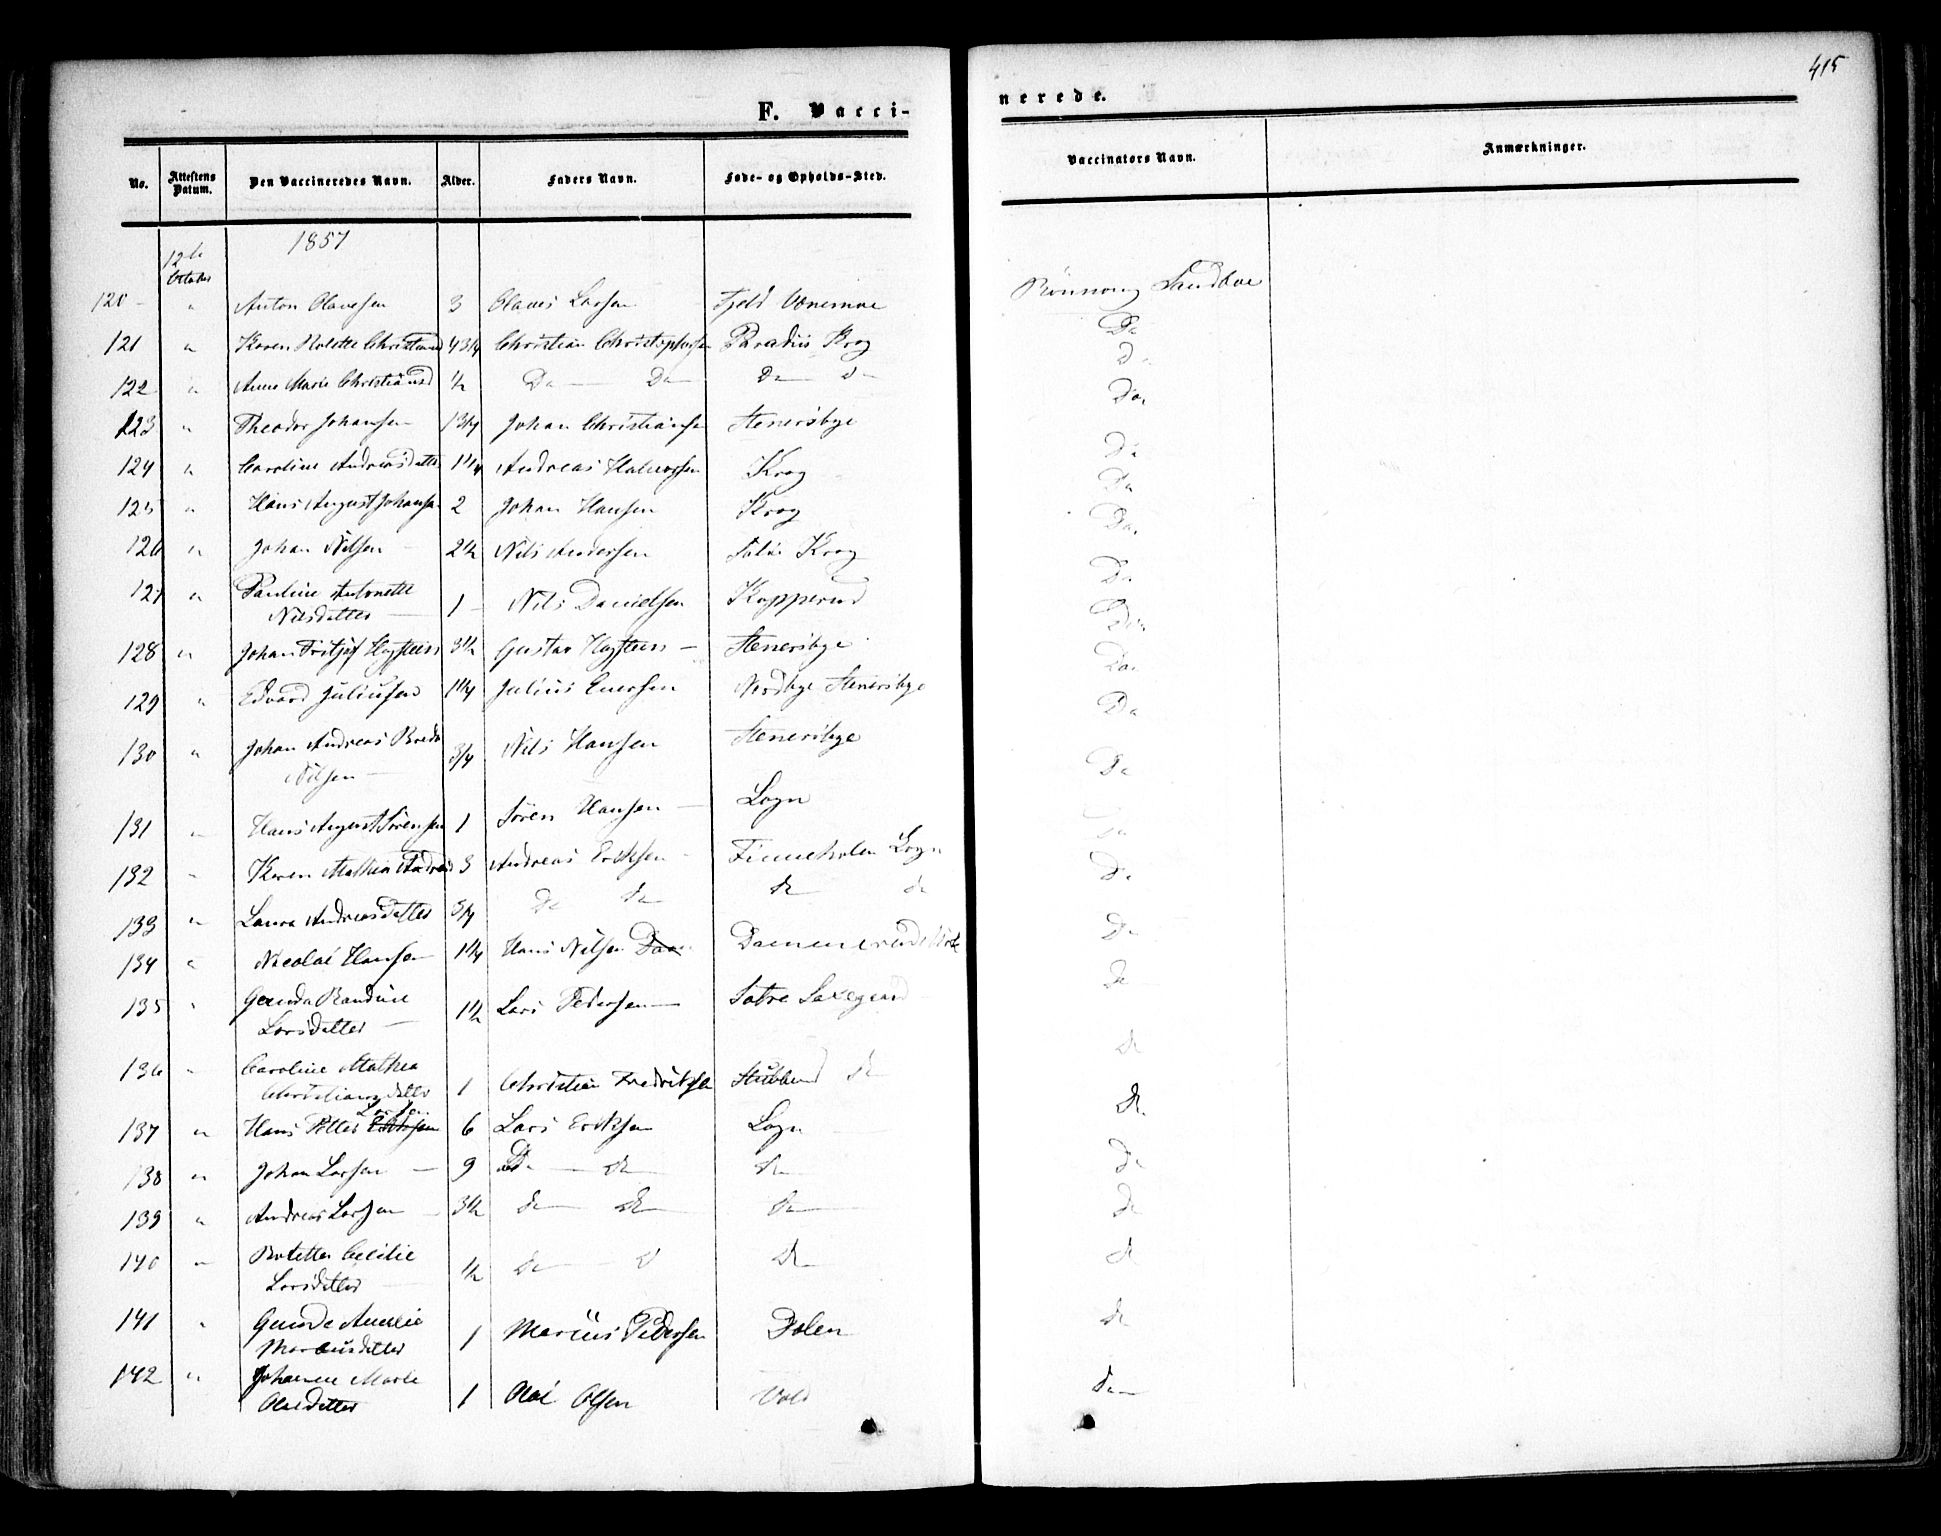 415
F. Vacci-
nerede.
No. Attestens Datum. Den Vaccineredes Navn. Alder. Faders Navn. Føde- og Opholds-Sted. Vaccinators Navn. Anmærkninger.
1857
12te
October
120 " Anton Olavesen 3 Olaves Larsen Fjeld Sandboe
121 " Karen Christiansd 4 3/4 Christian Christophersen Paradiis Krog Do
122 " Anne Marie Christiansd 1/2 Do Do Do do Do
123 " Theodor Johansen 1 3/4 Johan Christiansen Stenersbye Do
124 " Caroline Andreasdatter 1 1/4 Andreas Halvorsen Krog Do
125 " Hans August Johansen 2 Johan Hansen Krog Do
126 " Johan Nilsen 2 1/2 Nils Andersen Krog Do
127 " Pauline Antonette
Nilsdatter 1 Nils Danielsen Kopperud Do
128 " Johan Fritjof 3 1/2 Gustav Stenersbye Do
129 " Edvard Juliussen 1 1/4 Julius Enersen Nordbye Stenersbye Do
130 " Johan Andreas
Nilsen 3/4 Nils Hansen Stenersbye Do
131 " Hans August Sørensen 1 Søren Hansen Logn Do
132 " Karen Mathea Andreasd 3 Andreas Eriksen Logn Do
133 " Laura Andreasdatter 3/4 Do do do do Do
134 " Nicolai Hansen 1 1/4 Hans Nilsen Do
135 " Gunda Randine
Larsdatter 1 1/2 Lars Pedersen Do
136 " Caroline Mathea
Christiansdatter 1 Christian Fredriksen do do
137 " Hans Petter Eriksen Larsen 6 Lars Eriksen Logn do
138 " Johan Larsen 9 Do do do do
139 " Andreas Larsen 3 1/2 do do do do
140 " Cecilie
Larsdatter 1/2 do d do do
141 " Gunde Amelie
Mariusdatter 1 Marius Pedersen Dolen do
142 " Johanne Marie
Olaidatter 1 Olai Olsen Vold do